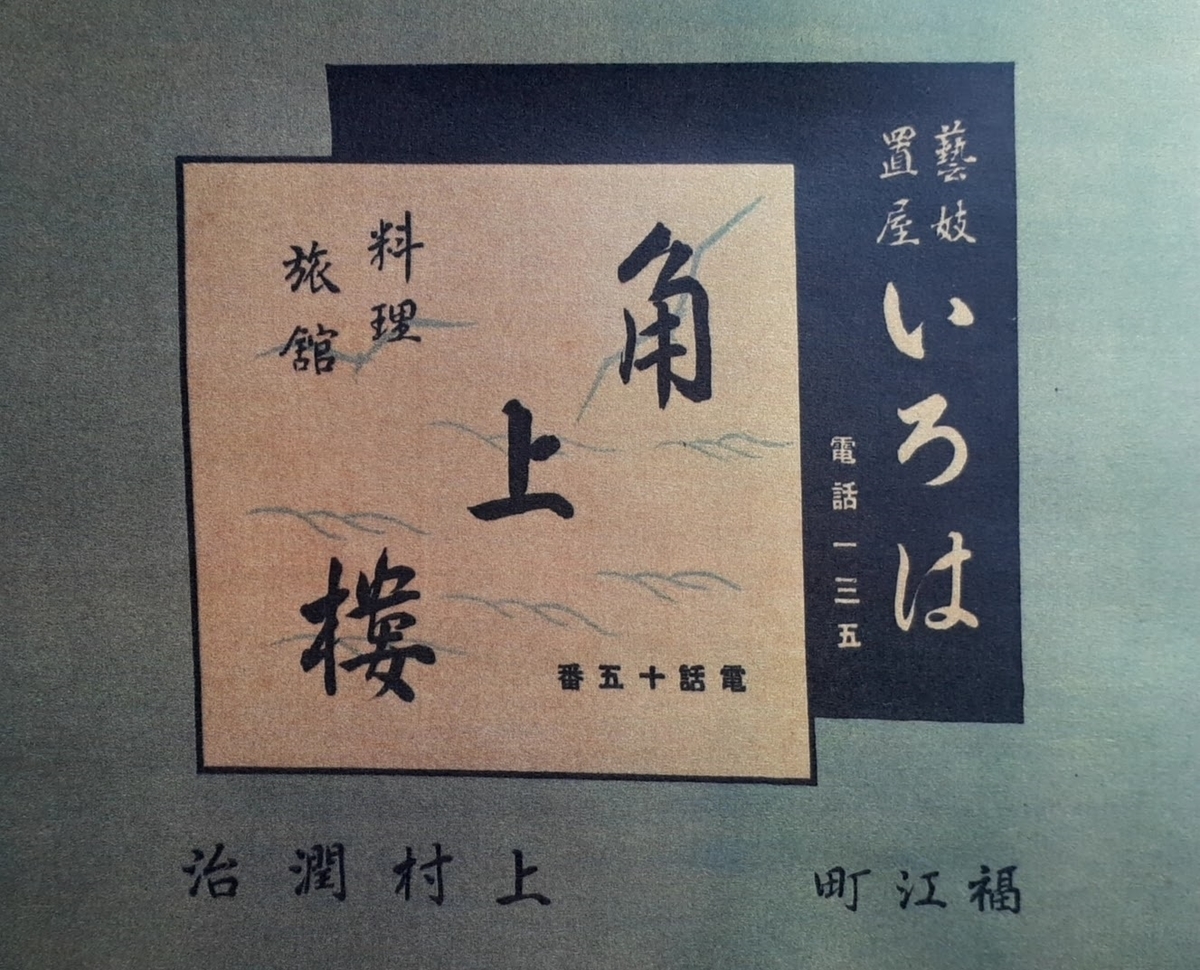 藝妓
置屋
いろは
電話一三五
角上樓
料理
旅舘
電話十五番
福江町
上村潤治